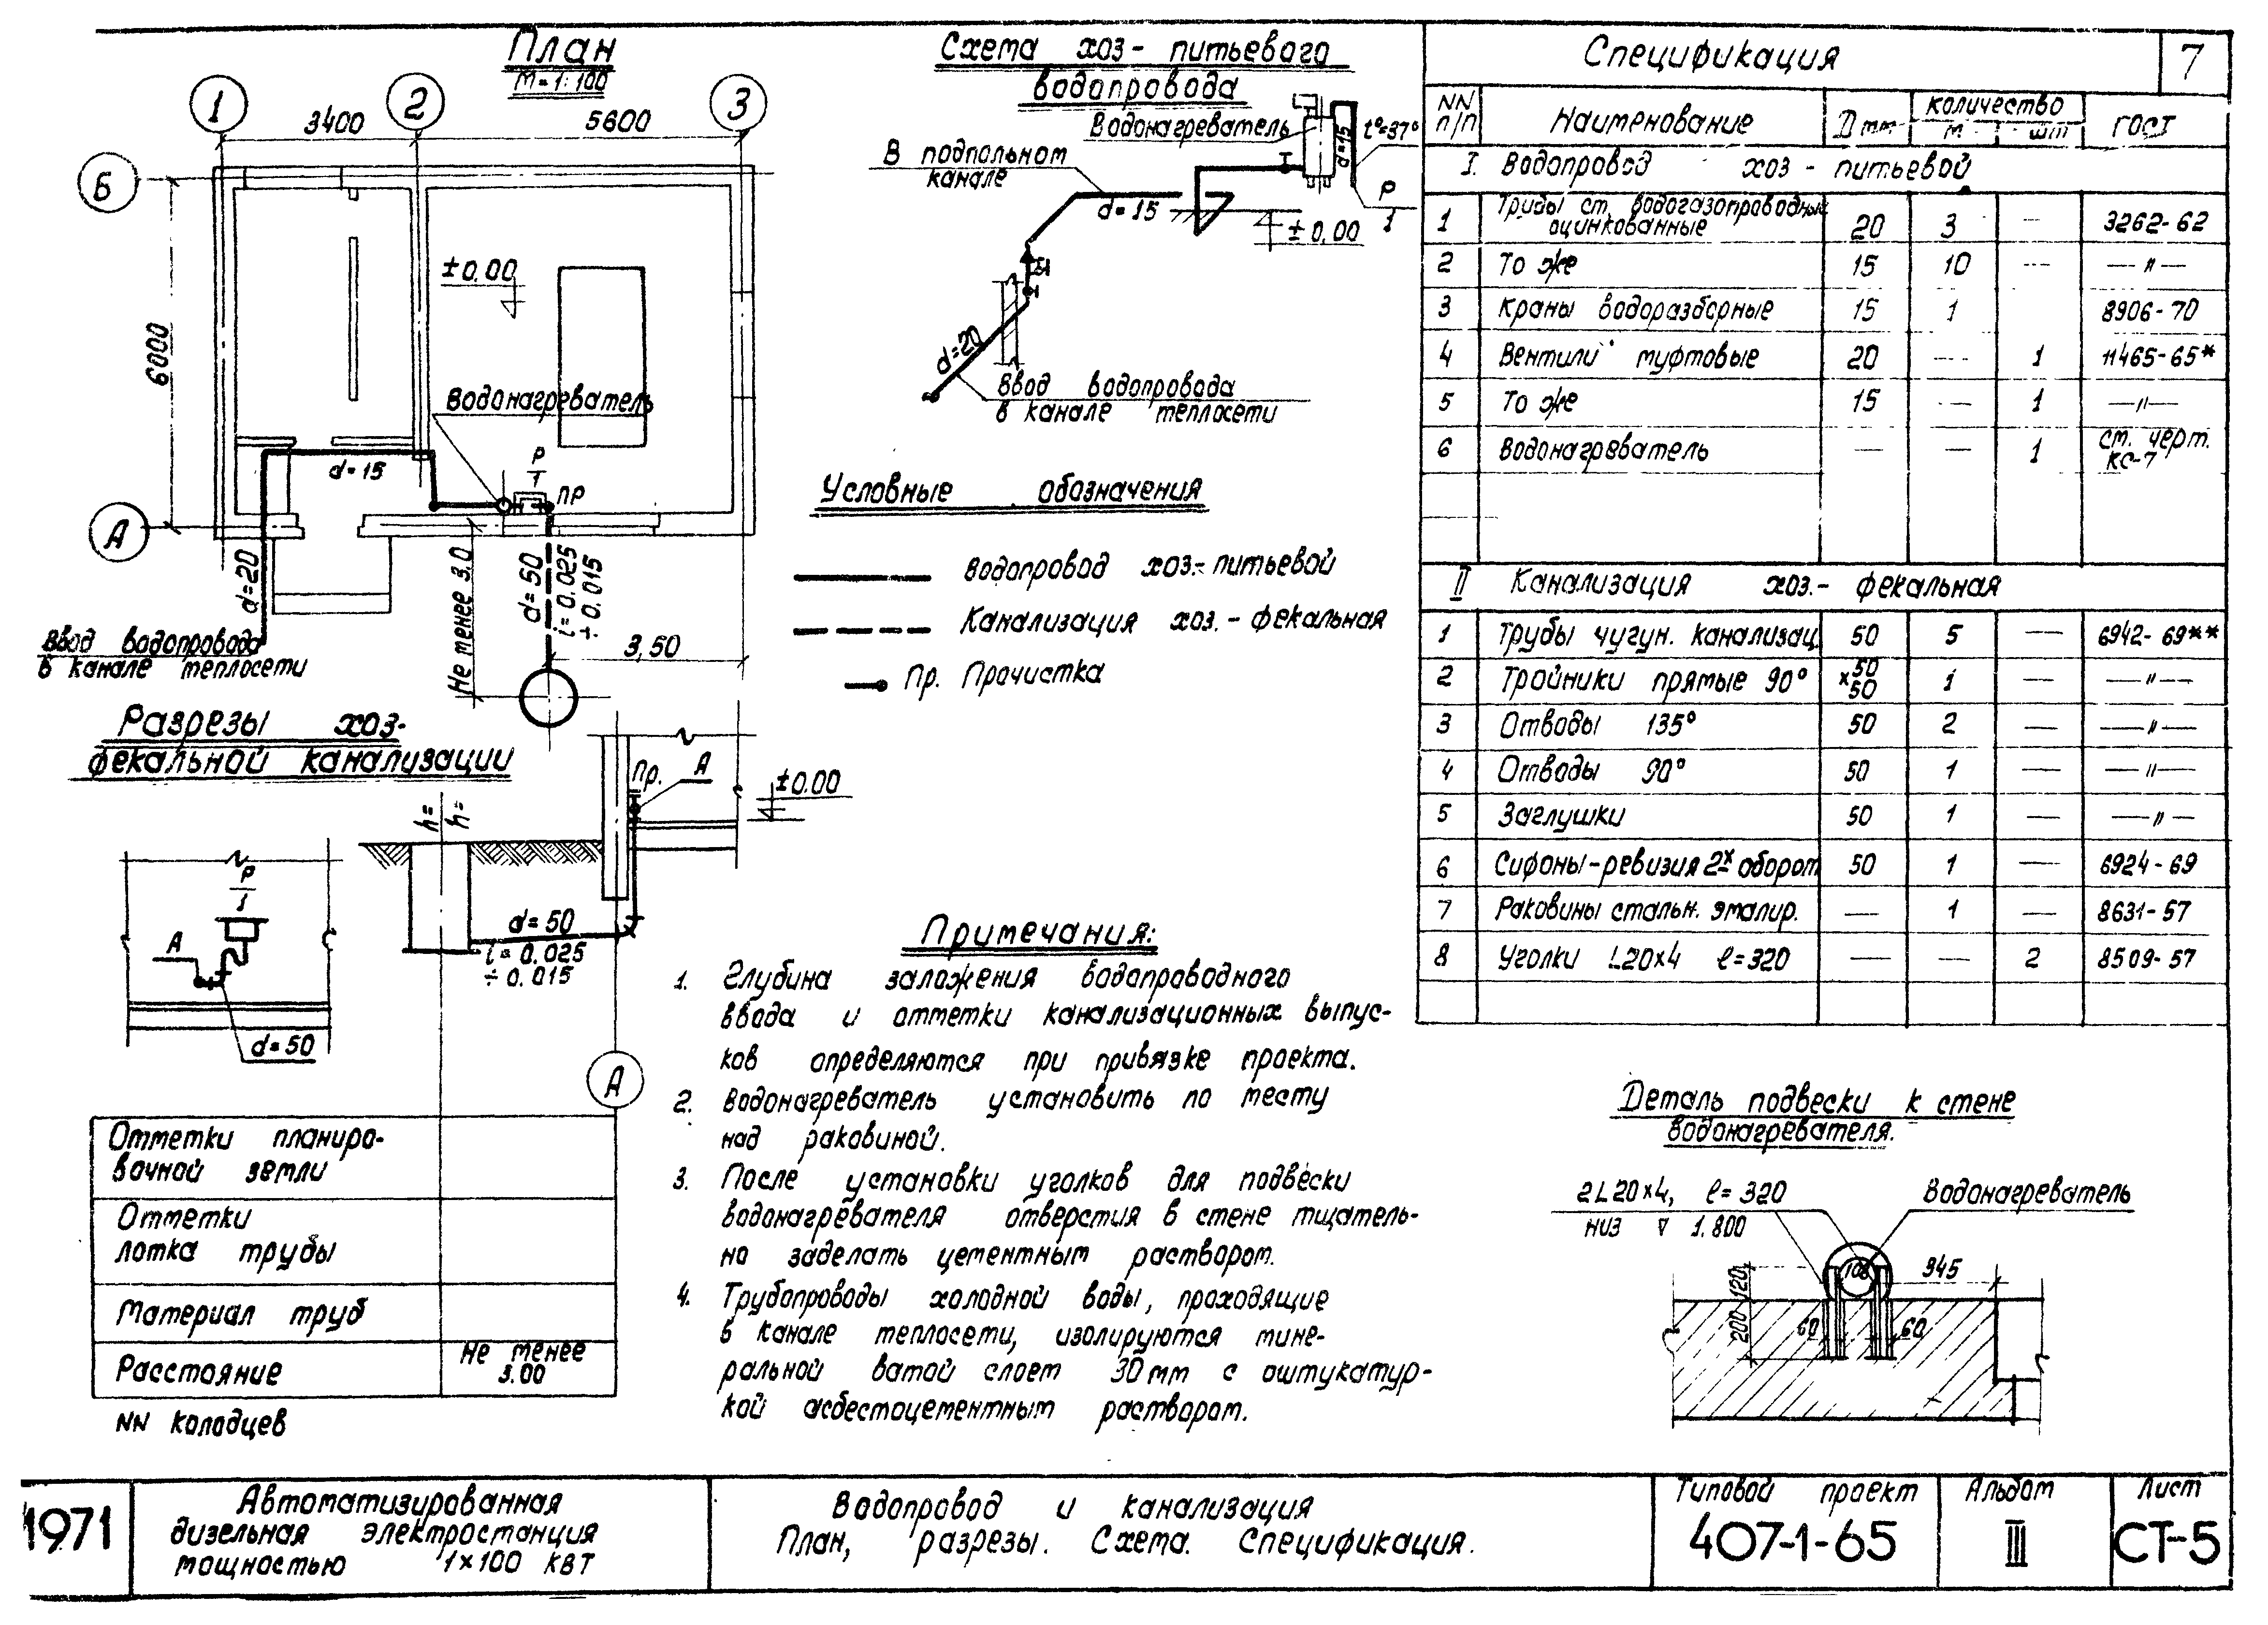 План
М=1:100
1
2
3
3400
5600
Б
6000
±0,00
Водонагреватель
Р
1
ПР
d=15
А
d=20
Не менее 3.0
d=50
i=0.025
÷0.015
3,50
Ввод водопровода
в канале теплосети
Схема хоз-питьевого
водопровода
Водонагреватель
d=15
t°=37°
Р
1
В подпольном
канале
d=15
±0,00
d=20
Ввод водопровода
в канале теплосети
Условные обозначения
Водопровод хоз.-питьевой
Канализация хоз.-фекальная
Пр. Прочистка
Разрезы хоз-
фекальной канализации
Пр.
А
±0.00
h=
h=
Р
1
А
d=50
d=50
i=0.025
÷0.015
А
Отметки планиро-
вочной земли
Отметки
лотка трубы
Материал труб
Расстояние Не менее
3.00
NN колодцев
Примечания:
1. Глубина заложения водопроводного
ввода и отметки канализационных выпус-
ков определяются при привязке проекта.
2. Водонагреватель установить по месту
над раковиной.
3. После установки уголков для подвески
водонагревателя отверстия в стене тщатель-
но заделать цементным раствором.
4. Трубопроводы холодной воды, проходящие
в канале теплосети, изолируются мине-
ральной ватой слоем 30мм с оштукатур-
кой асбестоцементным раствором.
Спецификация
7
NN п/п Наименование Dмм количество м шт ГОСТ
I. Водопровод хоз-питьевой
1 Трубы ст. водогазопроводные оцинкованные 20 3 — 3262-62
2 То же 15 10 — —"—
3 Краны водоразборные 15 1 8906-70
4 Вентили муфтовые 20 — 1 11465-65*
5 То же 15 — 1 —"—
6 Водонагреватель — — 1 см. черт. КС-7
II Канализация хоз.-фекальная
1 Трубы чугун. канализац. 50 5 — 6942-69**
2 Тройники прямые 90° 50 x50 1 — —"—
3 Отводы 135° 50 2 — —"—
4 Отводы 90° 50 1 — —"—
5 Заглушки 50 1 — —"—
6 Сифоны-ревизия 2х оборот 50 1 — 6924-69
7 Раковины стальн. эмалир. — 1 — 8631-57
8 Уголки L20x4 l=320 — — 2 8509-57
Деталь подвески к стене
водонагревателя.
2L20x4, l=320
низ ▽ 1.800
Водонагреватель
120
200
108
345
60
60
1971
Автоматизированная
дизельная электростанция
мощностью 1×100 квт
Водопровод и канализация
План, разрезы. Схема. Спецификация.
Типовой проект
407-1-65
Альбом
III
Лист
СТ-5